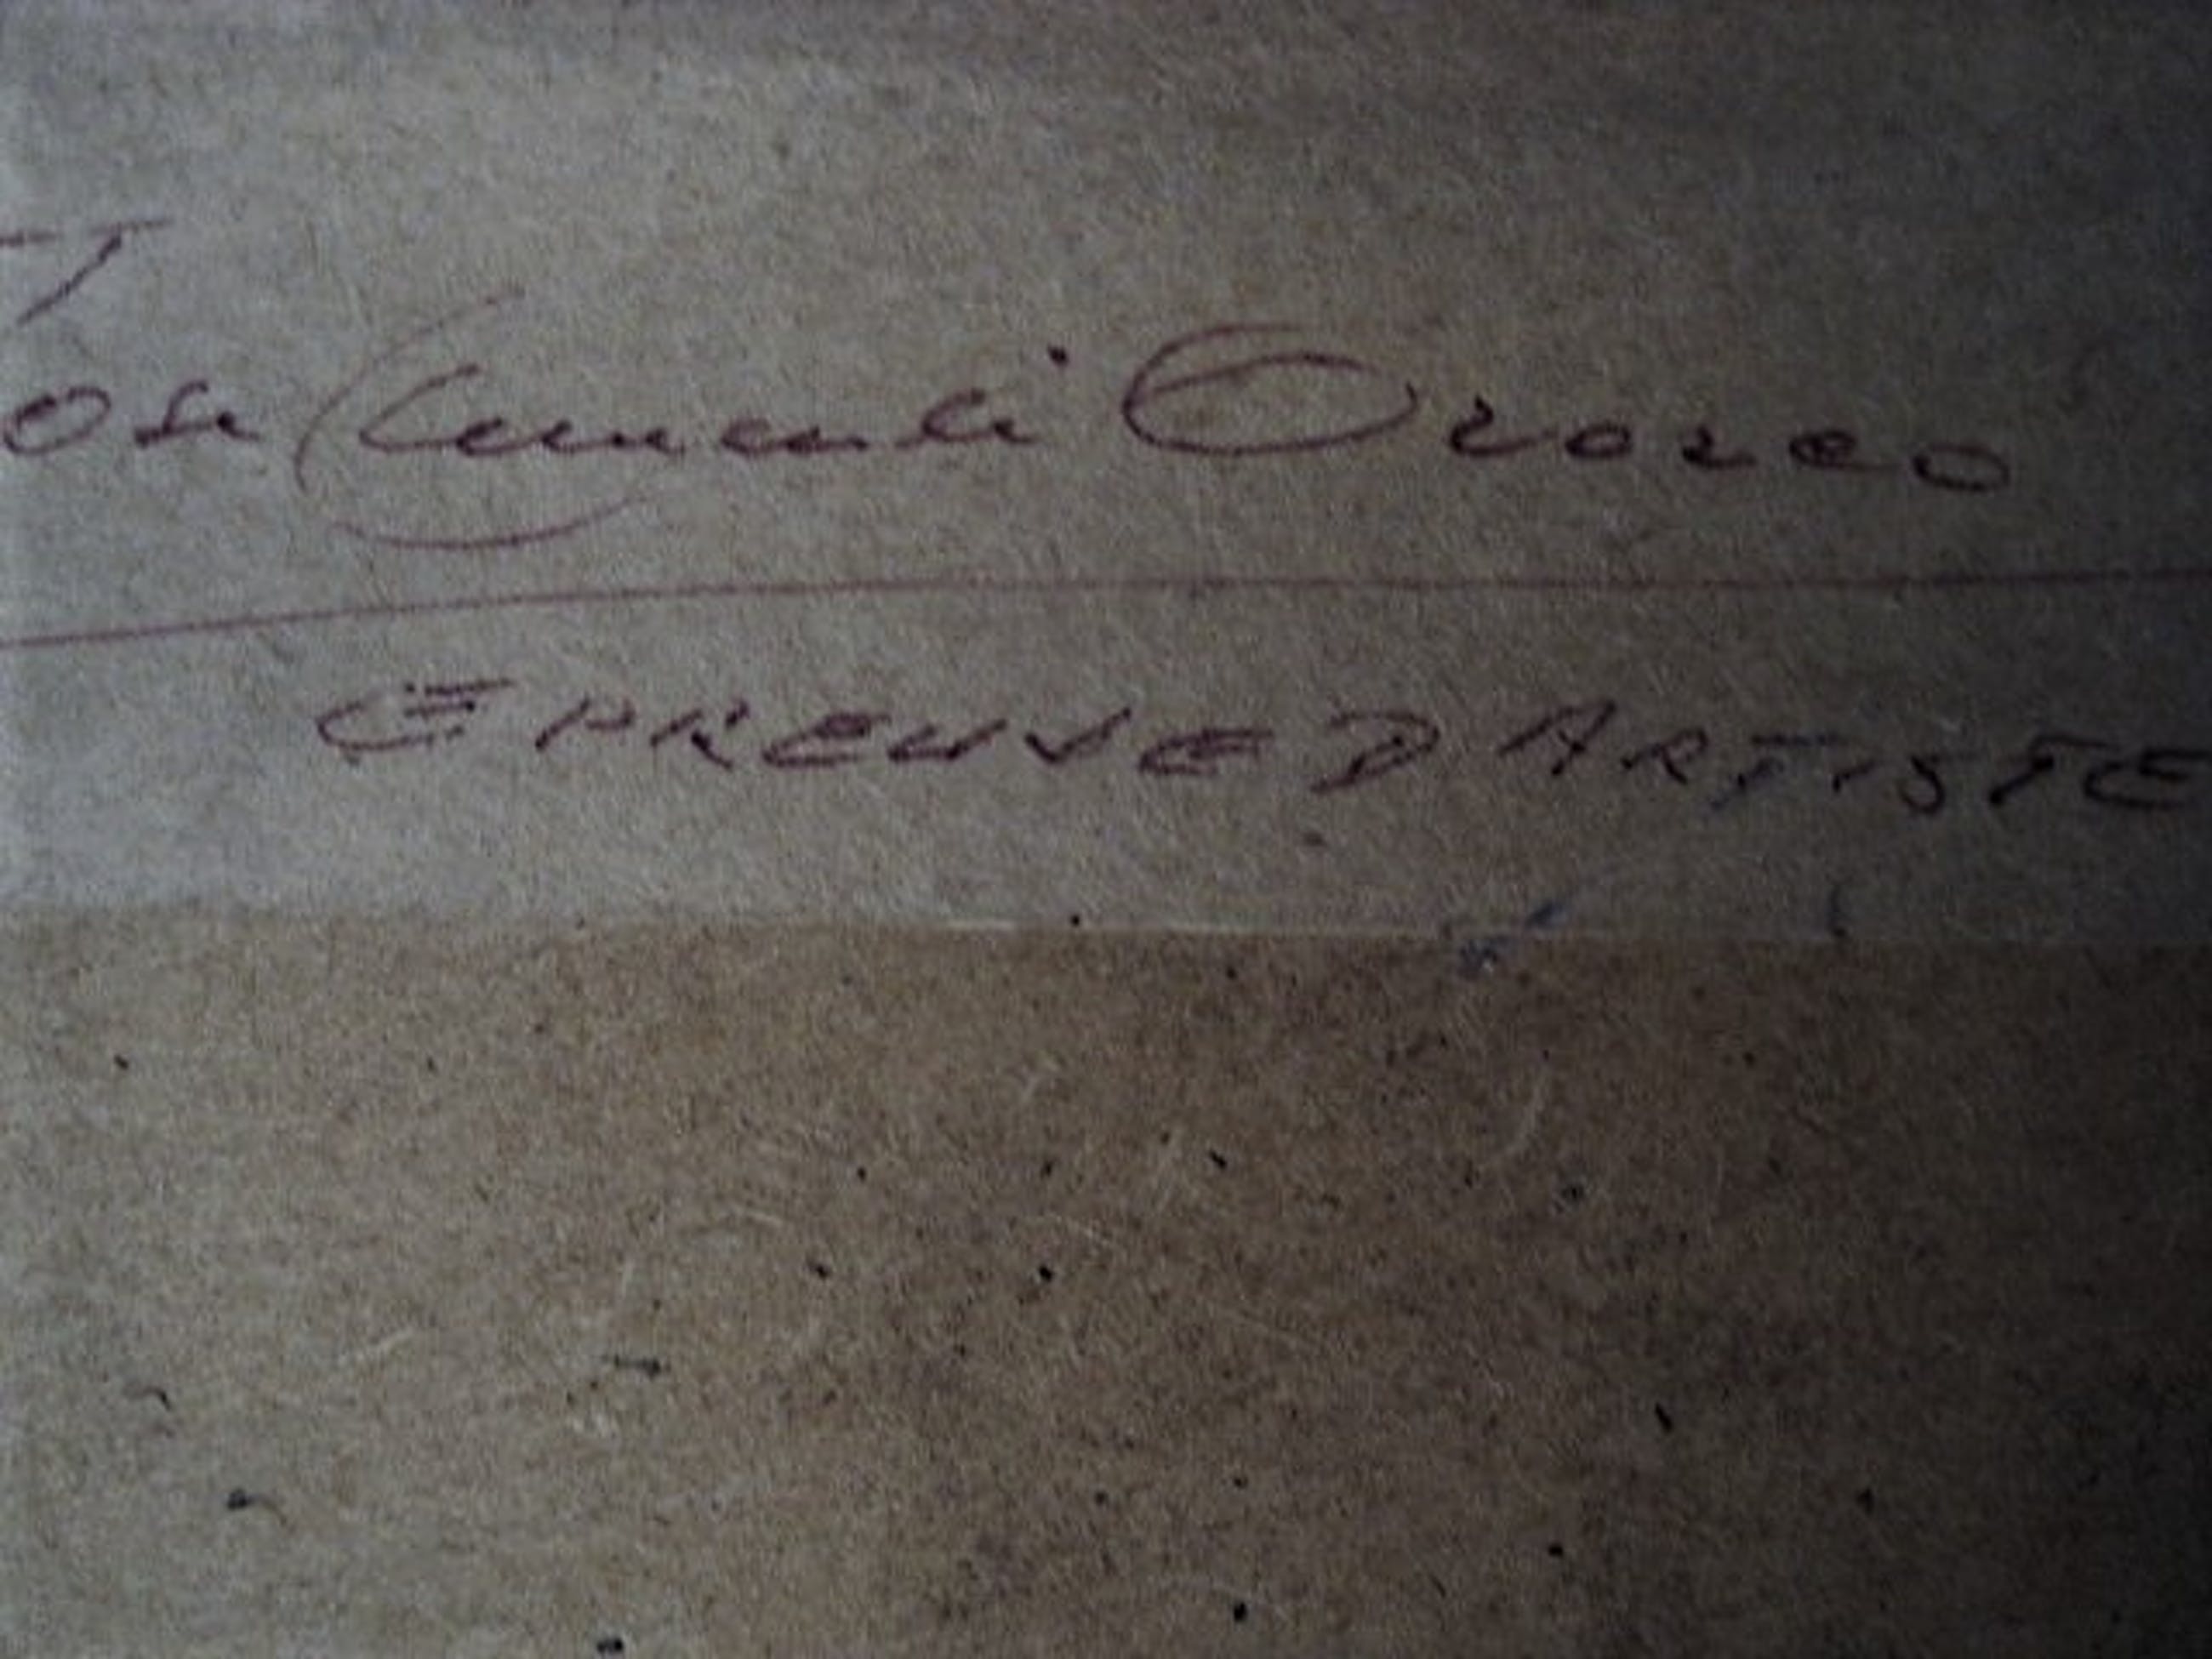 Jose Clemente Orozco
EPREUVE D ARTISTE